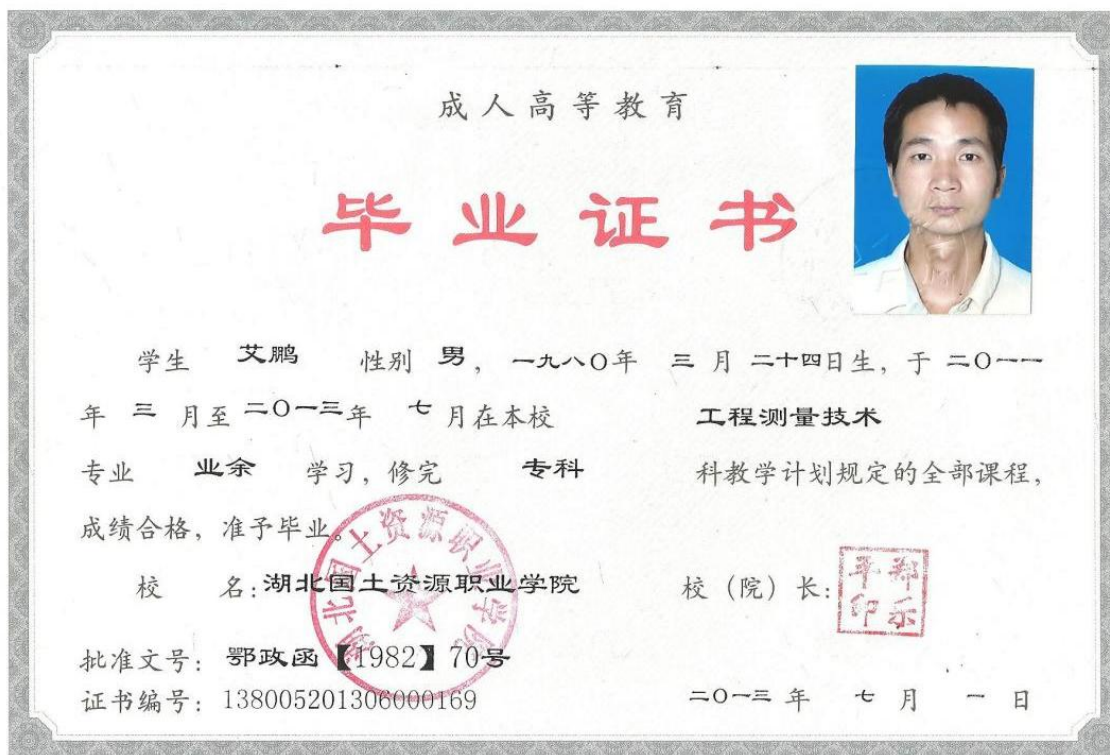 成人高等教育
毕业证书
学生 艾鹏 性别 男，一九八〇年 三 月 二十四日生，于 二〇一一
年 三 月至 二〇一三年 七 月在本校 工程测量技术
专业 业余 学习，修完 专科 科教学计划规定的全部课程，
成绩合格，准予毕业。
湖北国土资源职业学院
校 名：湖北国土资源职业学院 校（院）长：
批准文号：鄂政函【1982】70号
证书编号：138005201306000169 二〇一三 年 七 月 一 日